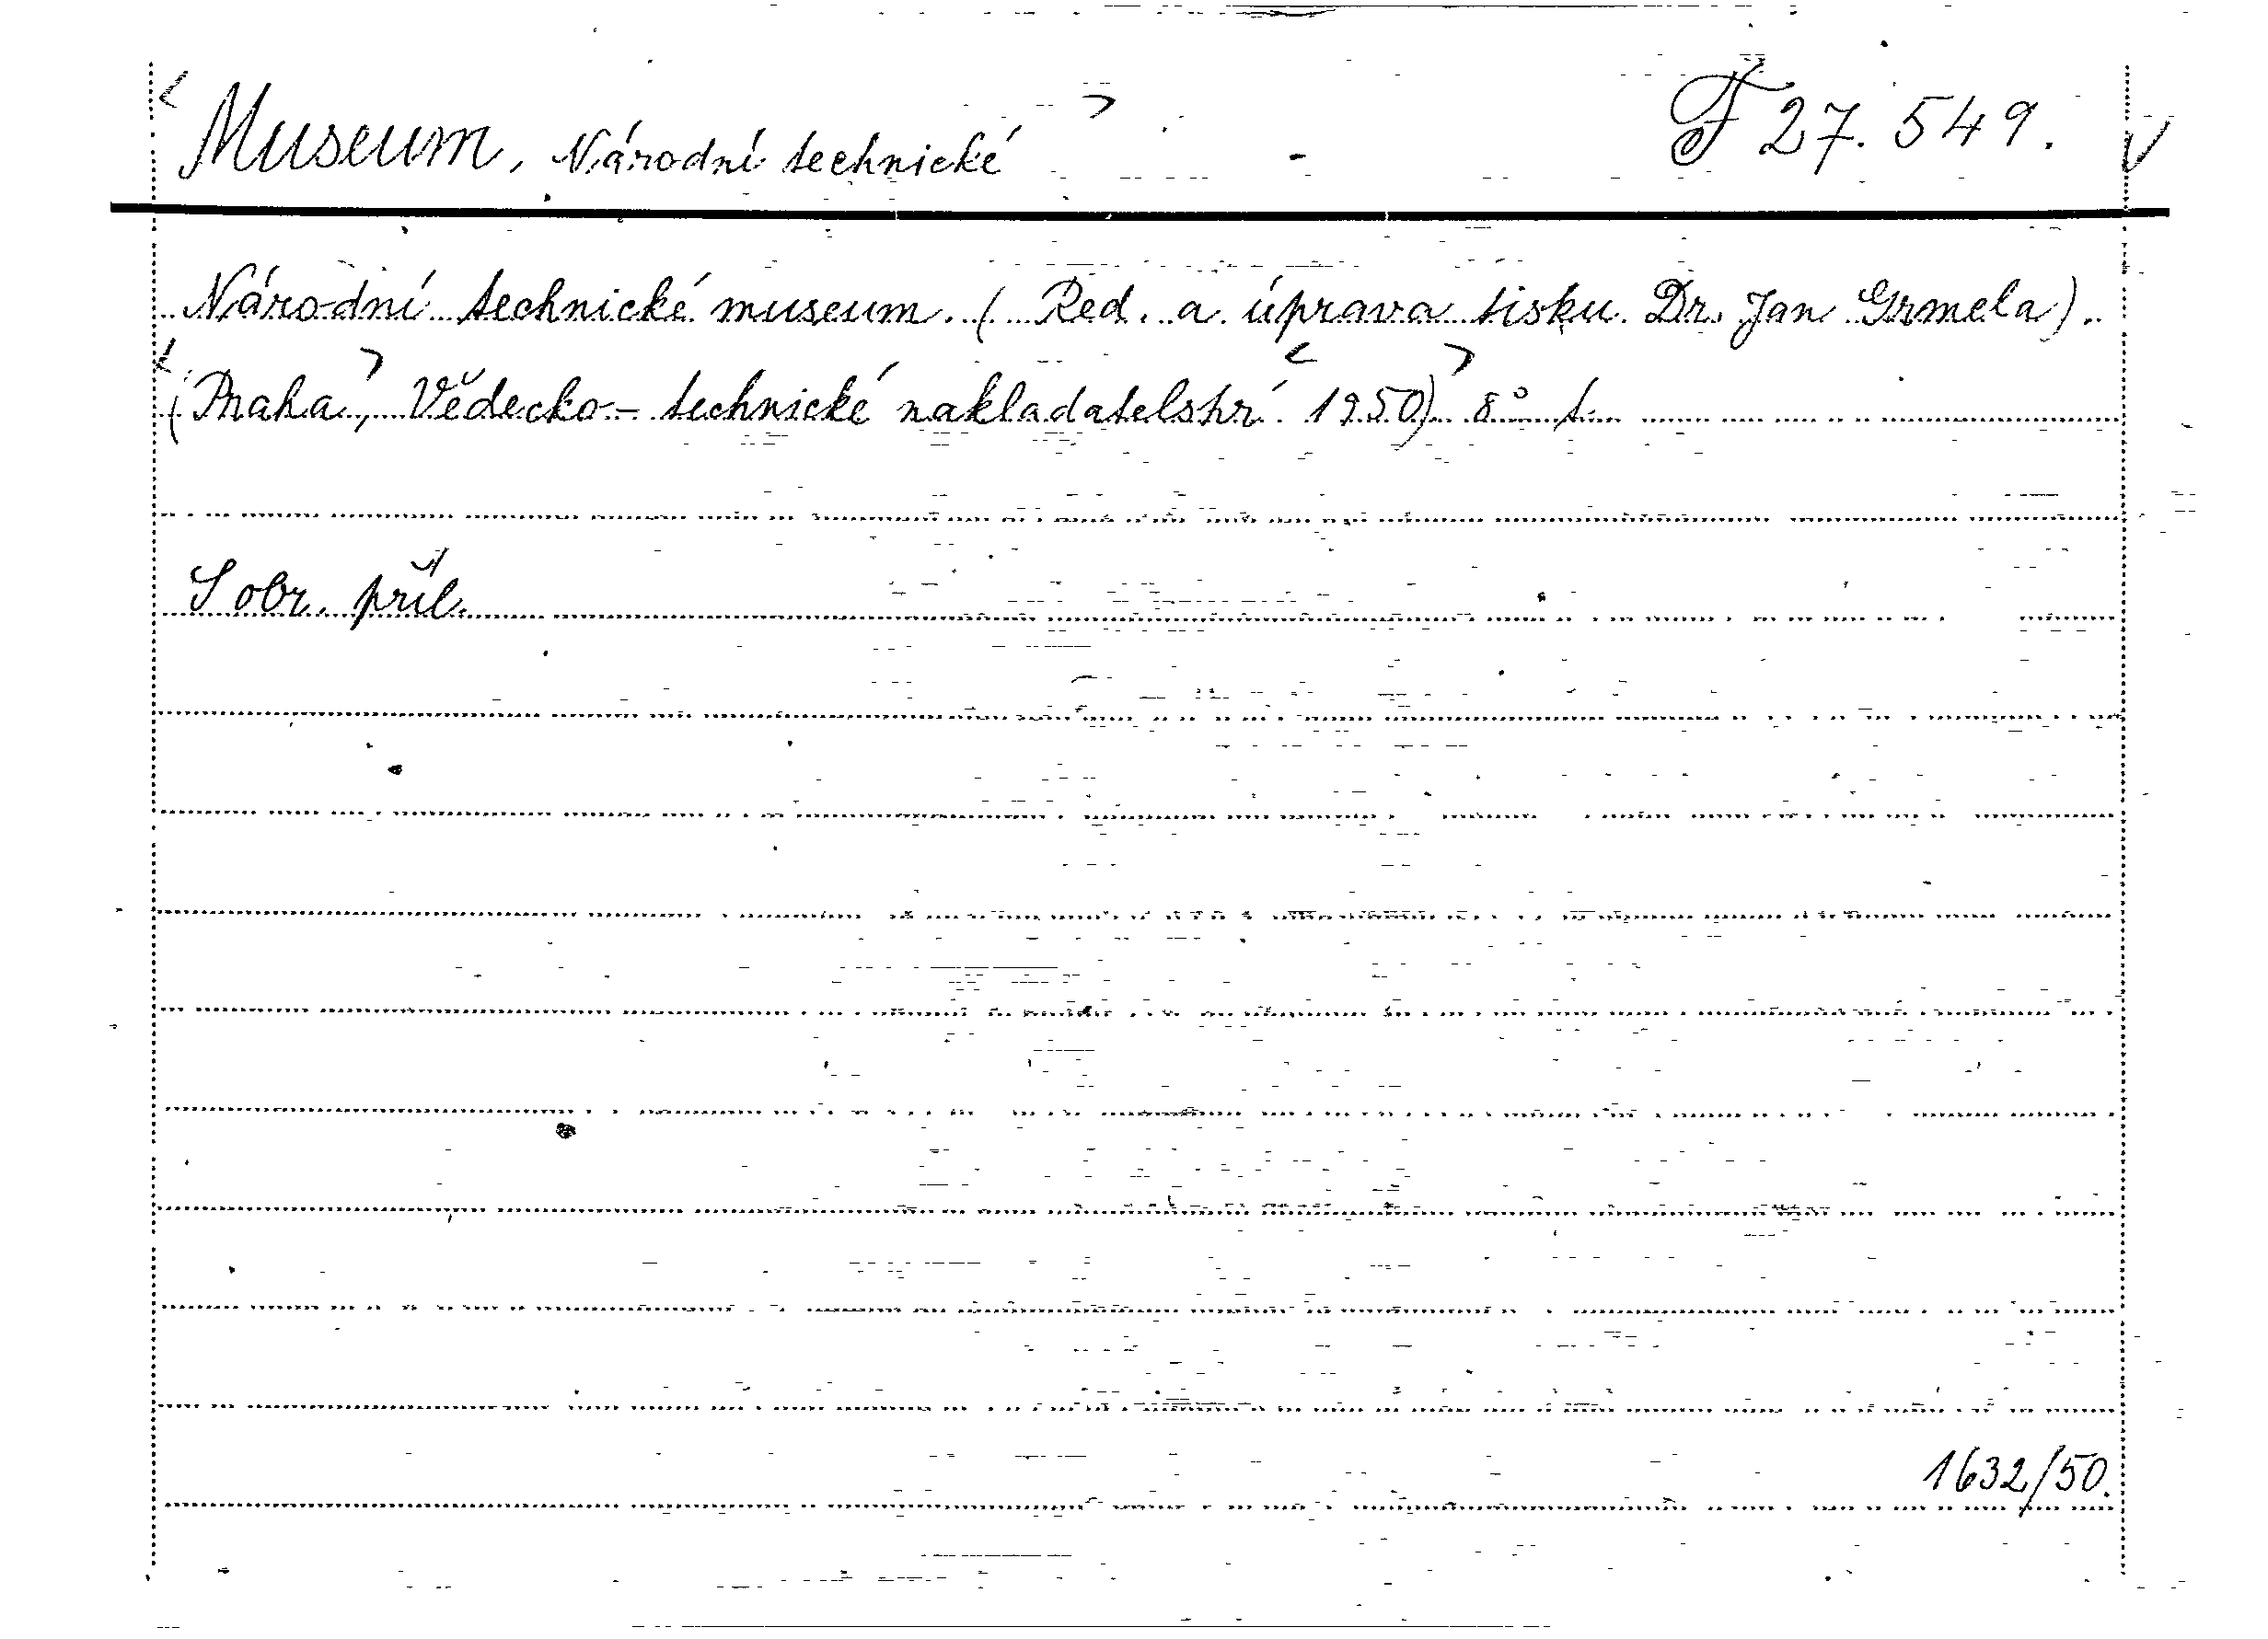 < Museum, Národní technické > F 27.549. V
Národní technické museum. (Red. a úprava tisku Dr. Jan Grmela).
<(Praha>, Vědecko-technické nakladatelství <1950)> 8°
S obr. příl.
1632/50.